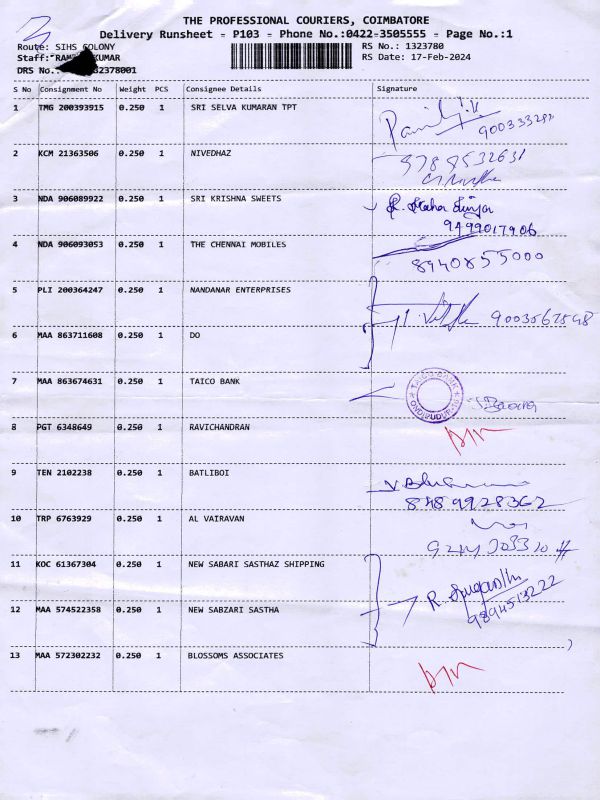 THE PROFESSIONAL COURIERS, COIMBATORE
Delivery Runsheet - P103 - Phone No.:0422-3505555 - Page No.:1
Route: SIHS COLONY
RS No.: 1323780
Staff: KUMAR
RS Date: 17-Feb-2024
DRS No.: 32378001
S No Consignment No Weight PCS Consignee Details Signature
1 TMG 200393915 0.250 1 SRI SELVA KUMARAN TPT
2 KCM 21363506 0.250 1 NIVEDHAZ
9789532631
3 NDA 906089922 0.250 1 SRI KRISHNA SWEETS
9499017906
4 NDA 906093053 0.250 1 THE CHENNAI MOBILES
8940855000
5 PLI 200364247 0.250 1 NANDANAR ENTERPRISES
6 MAA 863711608 0.250 1 DO
7 MAA 863674631 0.250 1 TAICO BANK
TAICO BANK
8 PGT 6348649 0.250 1 RAVICHANDRAN
9 TEN 2102238 0.250 1 BATLIBOI
8489928362
10 TRP 6763929 0.250 1 AL VAIRAVAN
11 KOC 61367304 0.250 1 NEW SABARI SASTHAZ SHIPPING
12 MAA 574522358 0.250 1 NEW SABZARI SASTHA
9894513222
13 MAA 572302232 0.250 1 BLOSSOMS ASSOCIATES